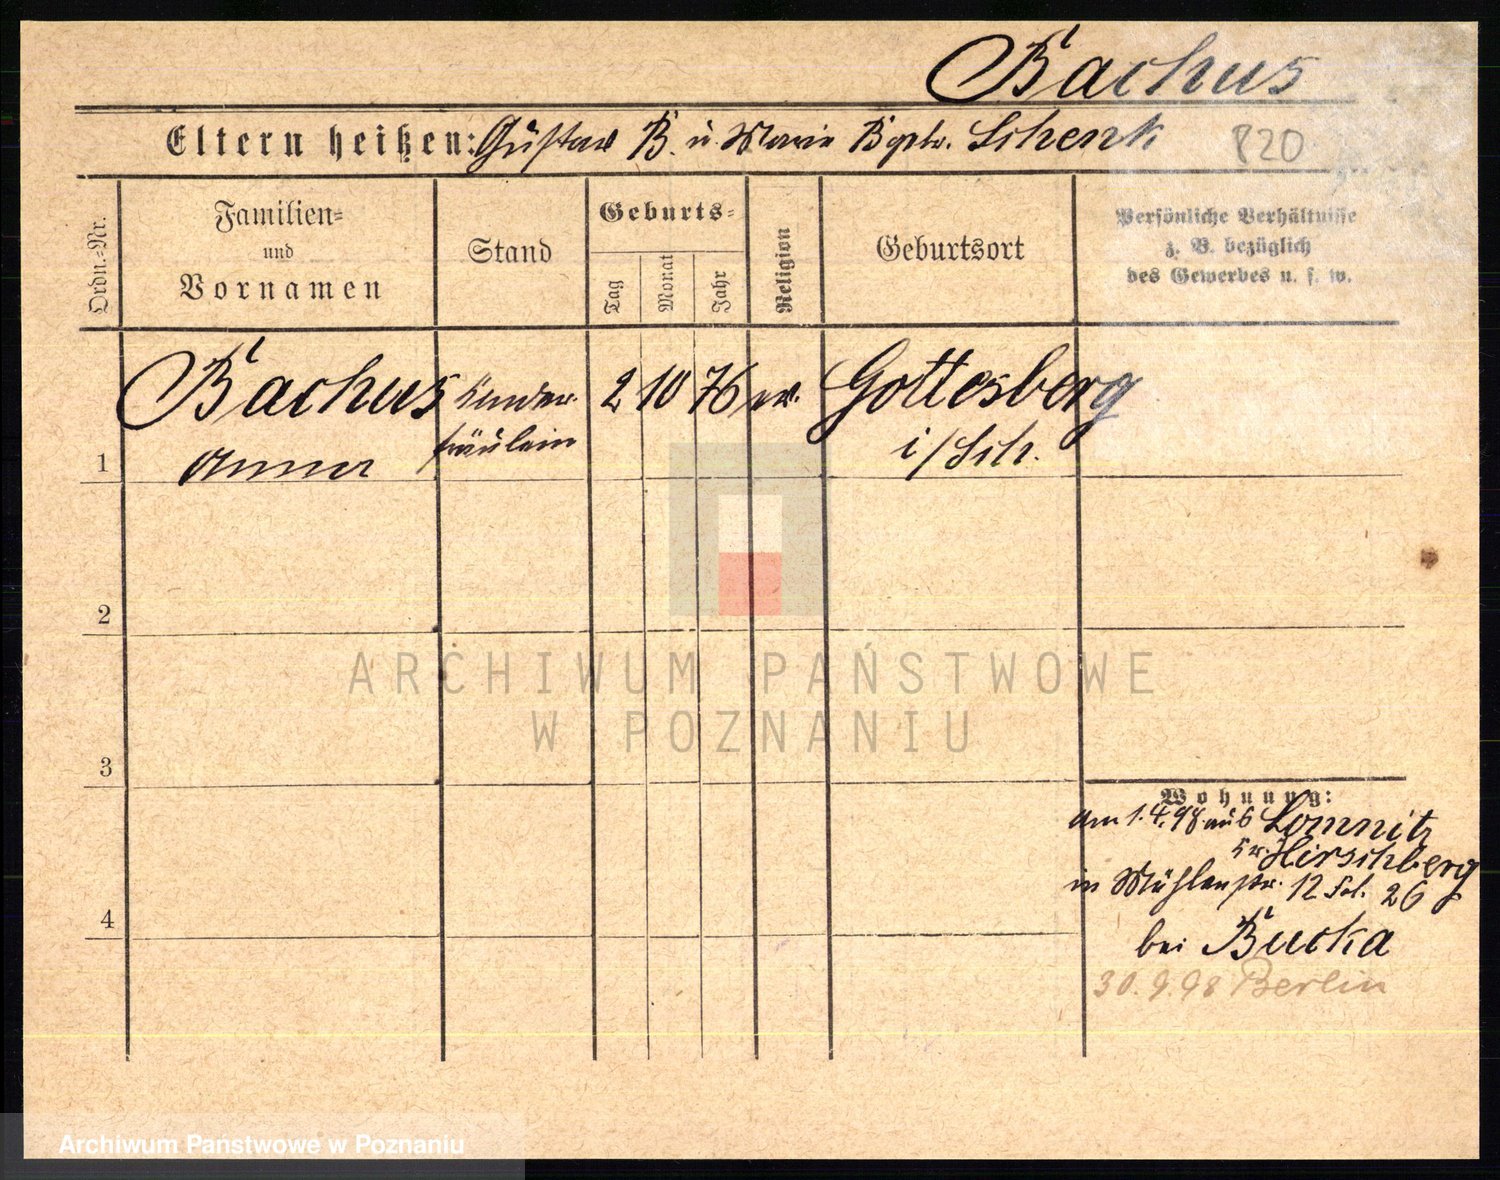 Bachus
Eltern heißen: Gustav B. u. Marie B gb. Schenk 820
Ordn.-Nr.
Familien-
und
Vornamen
Stand
Geburts-
Tag
Monat
Jahr
Religion
Geburtsort
Persönliche Verhältnisse
z. B. bezüglich
des Gewerbes u. s. w.
Bachus Kinder- 2 10 76 ev. Gottesberg
1 Anna fräulein i/Sch.
2
ARCHIWUM PAŃSTWOWE
W POZNANIU
3
Wohnung:
am 1.4.98 aus Lomnitz
Kr. Hirschberg
in Mühlenstr. 12 26
4
bei Bucka
30.9.98 Berlin
Archiwum Państwowe w Poznaniu